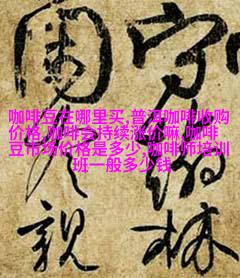 咖啡豆在哪里买,普洱咖啡收购
价格,咖啡会持续涨价嘛,咖啡
豆市场价格是多少,咖啡师培训
班一般多少钱
守林
親